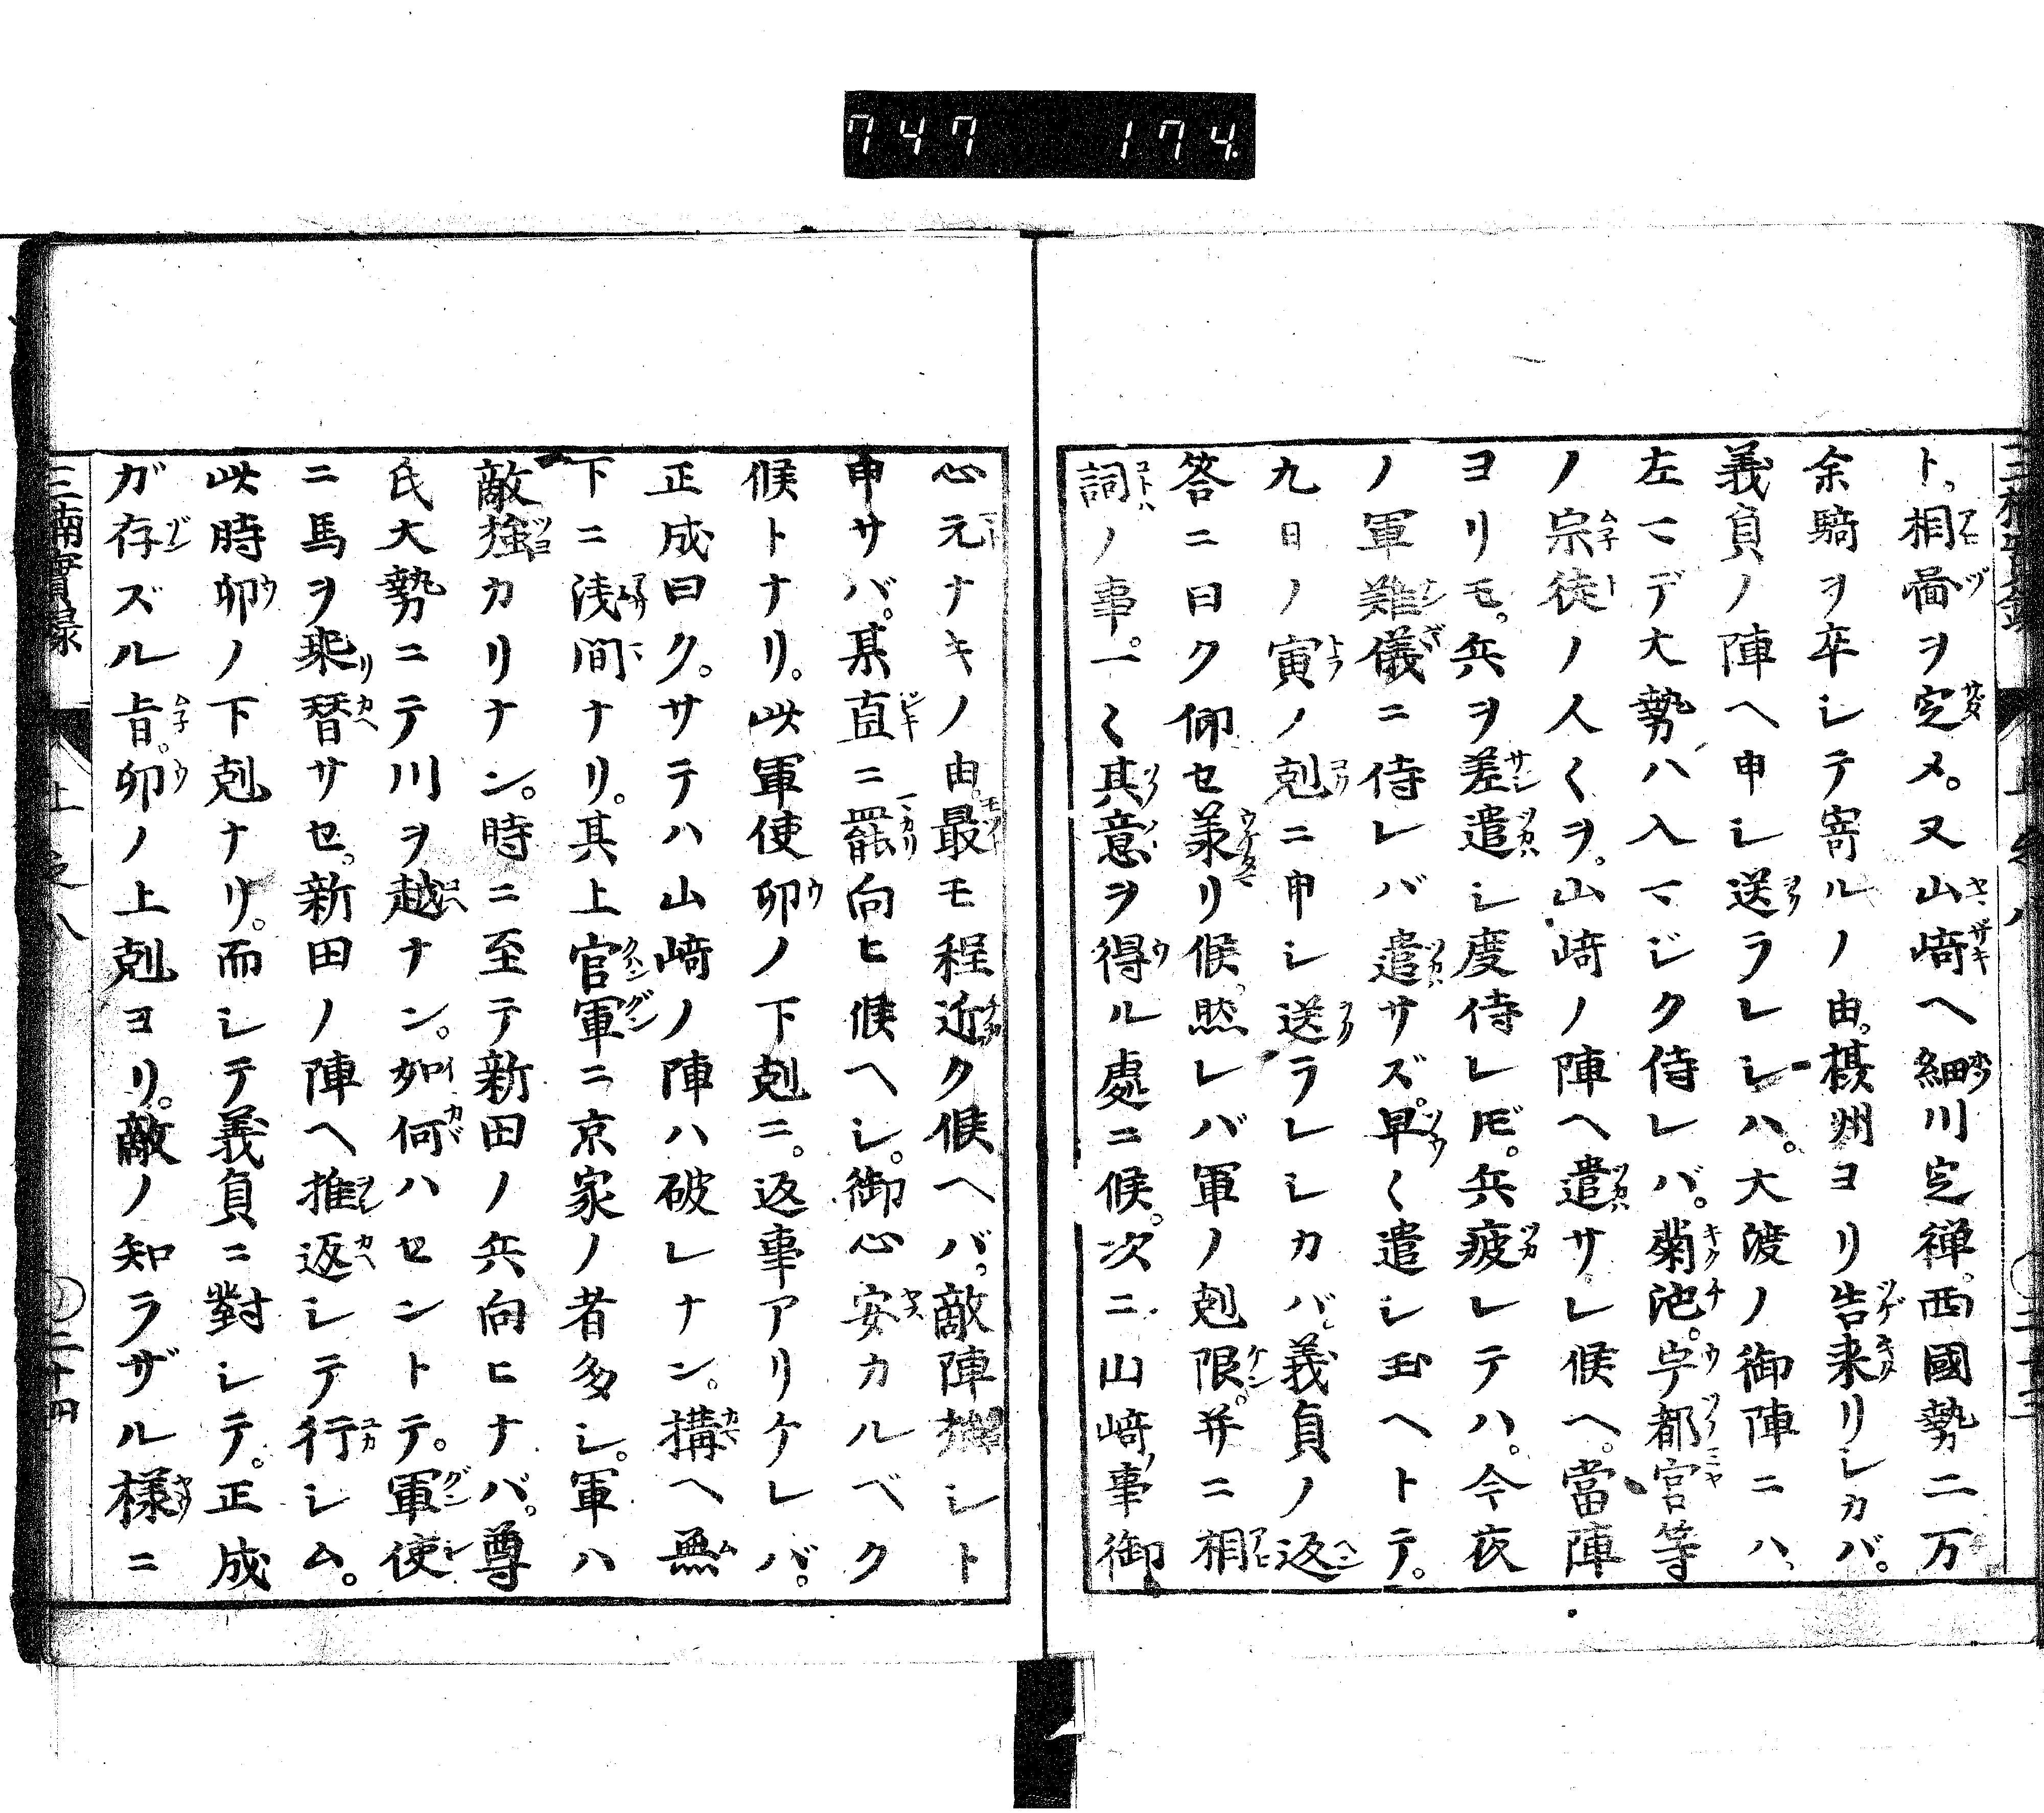 747 174
ト相圖ヲ定メ。又山﨑ヘ細川定禅。西國勢二万
余騎ヲ卒シテ寄ルノ由。摂州ヨリ告来リシカバ。
義貞ノ陣ヘ申シ送ラレシハ。大渡ノ御陣ニハ、
左マデ大勢ハ入マジク侍レバ。菊池。宇都宮等
ノ宗徒ノ人〱ヲ。山﨑ノ陣ヘ遣サレ候ヘ。當陣
ヨリモ。兵ヲ差遣シ度侍レ𪜈。兵疲レテハ。今夜
ノ軍難儀ニ侍レバ遣サズ。早〱遣シ玉ヘトテ。
九日ノ寅ノ剋ニ申シ送ラレシカバ、義貞ノ返
答ニ曰ク仰セ羕リ候。然レバ軍ノ剋限。并ニ相
詞ノ事。一〱其意ヲ得ル處ニ候。次ニ山﨑ノ事御
心元ナキノ由。最モ程近ク候ヘバ、敵陣強シト
申サバ。某直ニ罷向ヒ候ヘシ。御心安カルベク
候トナリ。此軍使卯ノ下剋ニ。返事アリケレバ。
正成曰ク。サテハ山﨑ノ陣ハ破レナン。搆ヘ無
下ニ浅間ナリ。其上官軍ニ京家ノ者多シ。軍ハ
敵強カリナン。時ニ至テ新田ノ兵向ヒナバ。尊
氏大勢ニテ川ヲ越ナン。如何ハセントテ。軍使
ニ馬ヲ乗替サセ。新田ノ陣ヘ推返シテ行シム。
此時卯ノ下剋ナリ。而シテ義貞ニ對シテ。正成
ガ存ズル旨。卯ノ上剋ヨリ。敵ノ知ラザル様ニ
三楠實録 上之八 二十四